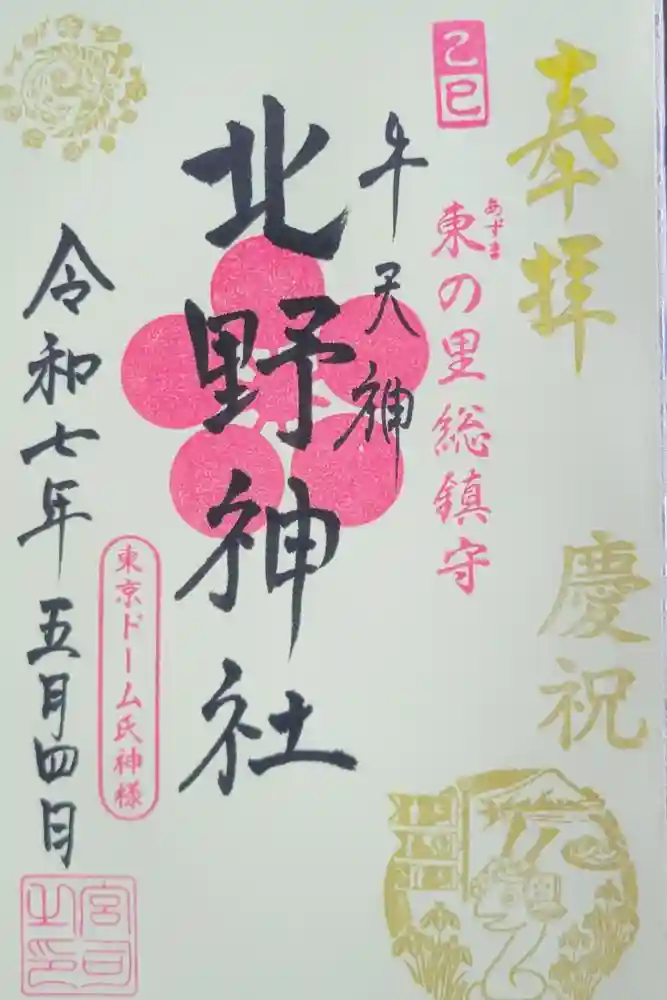 奉拝
慶祝
己巳
東の里総鎮守
あずま
牛天神
北野神社
東京ドーム氏神様
令和七年五月四日
宮司之印